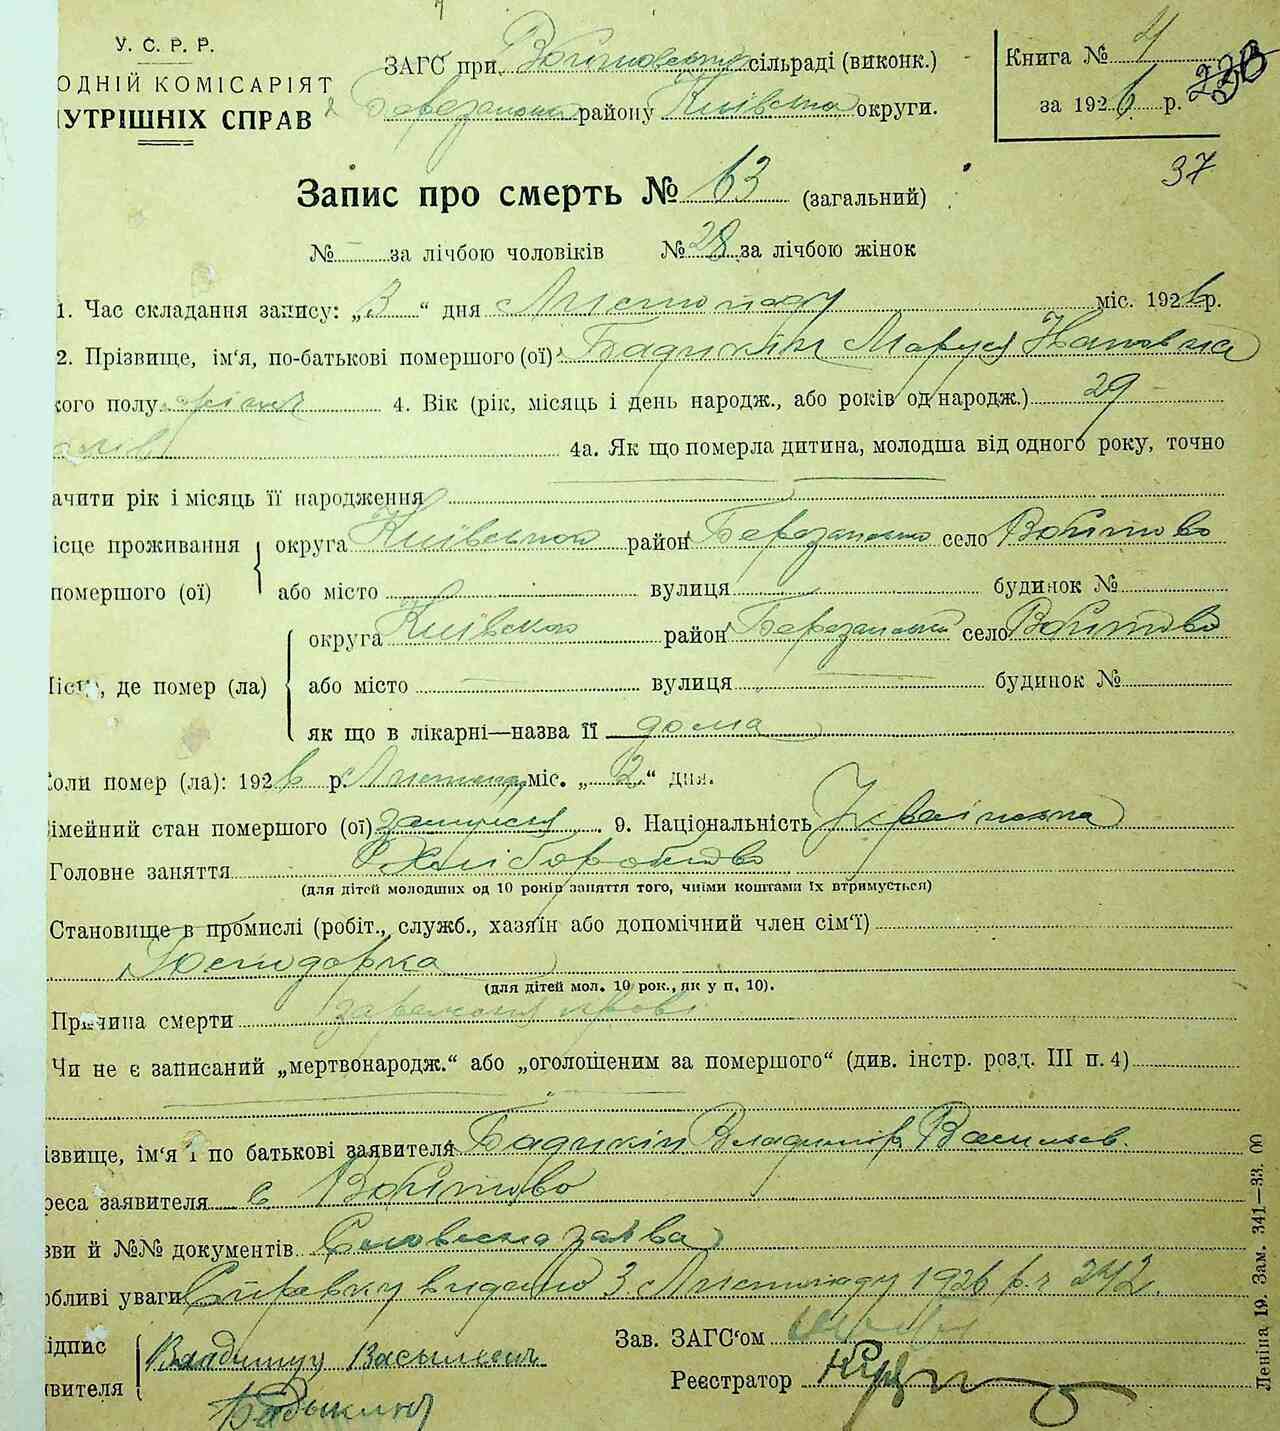 У. С. Р. Р.
ОДНІЙ КОМІСАРІЯТ
УТРІШНІХ СПРАВ
ЗАГС при Войтовській сільраді (виконк.)
Березанського району Київської округи.
Книга № 4
за 1926 р.
338
37
Запис про смерть № 63 (загальний)
№ за лічбою чоловіків № 28 за лічбою жінок
1. Час складання запису: „3“ дня Листопаду міс. 1926 р.
2. Прізвище, ім‘я, по-батькові помершого (ої) Бадикіна Маруся
кого полу жіноч 4. Вік (рік, місяць і день народж., або років од народж.) 29
4а. Як що померла дитина, молодша від одного року, точно
ачити рік і місяць її народження
ісце проживання округа Київської район Березанський село Войтово
помершого (ої) або місто вулиця будинок №
округа Київської район Березанський село Войтово
Місце, де помер (ла) або місто вулиця будинок №
як що в лікарні—назва її дома
Коли помер (ла): 1926 р. Листопад міс. „2“ дня.
імейний стан помершого (ої) замужня 9. Національність Українка
Головне заняття Хліборобство
(для дітей молодших од 10 років заняття того, чиїми коштами їх втримується)
Становище в промислі (робіт., служб., хазяїн або допомічний член сім‘ї)
Господарка
(для дітей мол. 10 рок., як у п. 10).
Причина смерти зараження крові
Чи не є записаний „мертвонародж.“ або „оголошеним за помершого“ (див. інстр. розд. III п. 4)
ізвище, ім‘я і по батькові заявителя Бадикін Владимір Васильев.
реса заявителя с. Войтово
зви й №№ документів Словесна заява
обливі уваги Справку видано 3 Листопаду 1926 р. ч 242.
ідпис Зав. ЗАГС‘ом
Владимир Васильевич
вителя Реєстратор
Бадыкин
Леніна 19. Зам. 341—33. 00